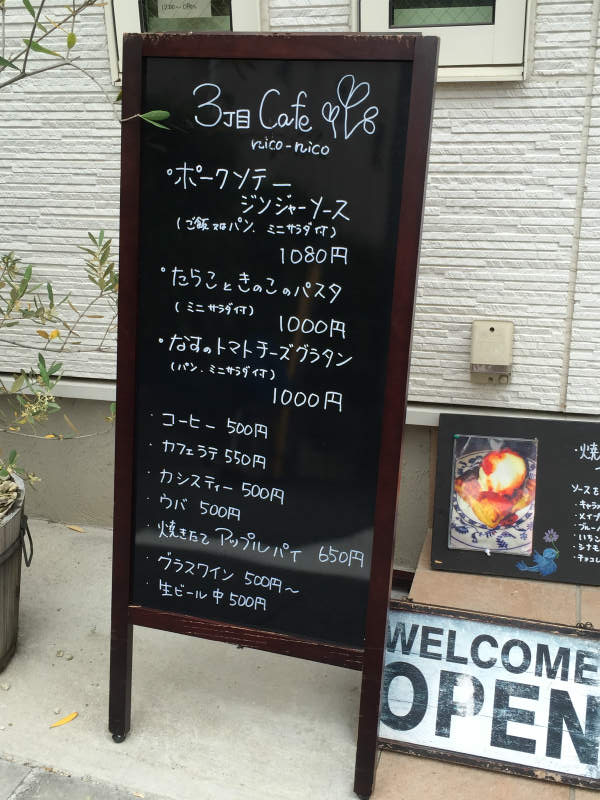 12:00~OPEN
3丁目 Cafe
nico-nico
・ポークソテー
ジンジャーソース
(ご飯又はパン、ミニサラダ付)
1080円
・たらこときのこのパスタ
(ミニサラダ付)
1000円
・なすのトマトチーズグラタン
(パン、ミニサラダ付)
1000円
・コーヒー 500円
・カフェラテ 550円
・カシスティー 500円
・ウバ 500円
・焼きたて アップルパイ 650円
・グラスワイン 500円～
・生ビール 中 500円
・焼
ソースを
・キャラ
・メイプ
・ブルー
・いちご
・シナモ
・チョコレ
WELCOME
OPEN